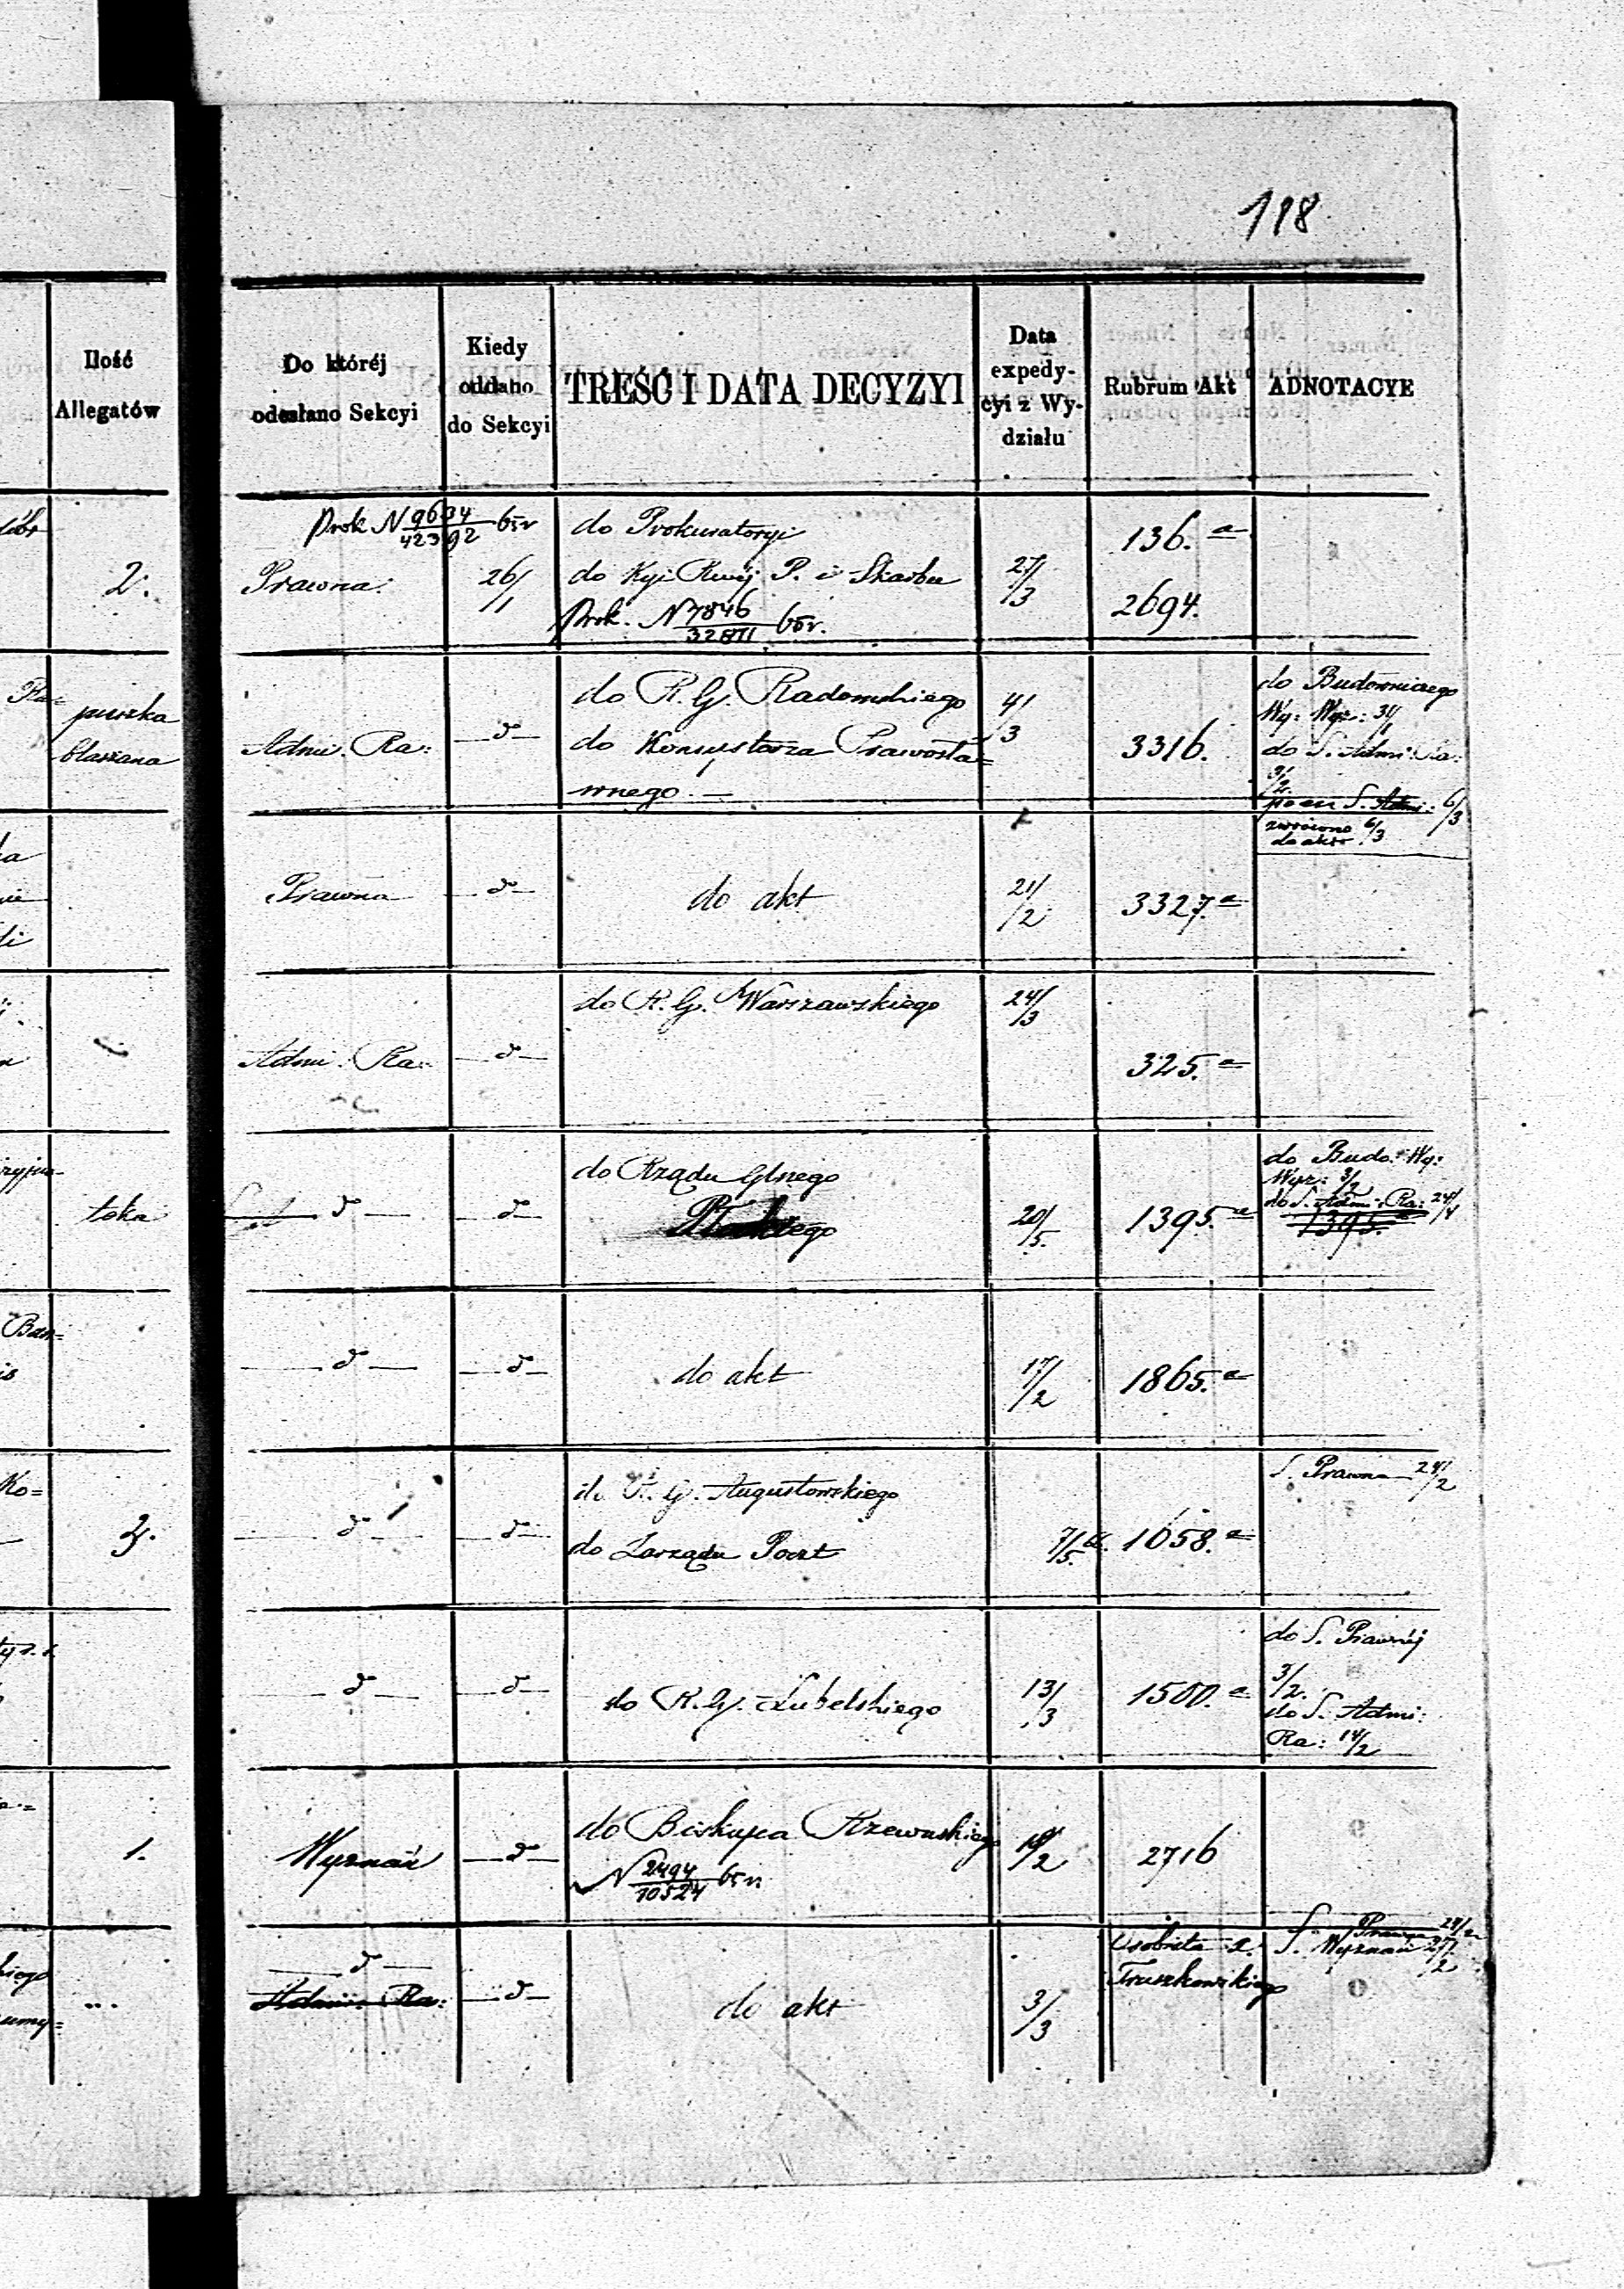 118
Ilość
Allegatów
Do któréj
odesłano Sekcyi
Kiedy
oddano
do Sekcyi
TREŚĆ I DATA DECYZYI
Data
expedy-
cyi z Wy-
działu
Rubrum Akt
ADNOTACYE
2.
Prok N 9634/42392 65r
Prawna.
26/1
do Prokuratoryi
do Kyi Rwéj P. i Skarbu
Prok. N 7846/32811 65r.
27/3
136.a
2694.
puszka
blaszana
Admi. Ra:
d
do R. G. Radomskiego
do Konsystorza Prawosła=
wnego. —
4/3
3316.
do Budowniczego
Wy: Wyz: 31/
do S. Admi: Ra:
9/2.
S. Admi: 6/3
zwrócono 6/3
do akt
Prawna
d
do akt
21/2
3327.a
Admi. Ra:
d
do R. G. Warszawskiego
24/3
325.a
teka
d
d
do Rządu Glnego
Płockiego
20/5.
1395.a
do Budo: Wy:
Wyz: 3/2
do S. Admi: Ra: 24/4
1395.
d
d
do akt
17/2
1865.a
3.
d
d
do R. G. Augustowskiego
do Zarządu Poczt
7/5.
1058.a
S. Prawna 24/2
d
d
do R. G. Lubelskiego
13/3
1500.a
do S. Prawnéj
3/2.
do S. Admi:
Ra: 14/2
1.
Wyznań
d
do Biskupa Rzewuskiego
N 2494/10524 65r.
2716
d
Admi: Ra:
d
do akt
3/3
Osobiste
Truszkowskiego
S. Prawna
S. Wyznań